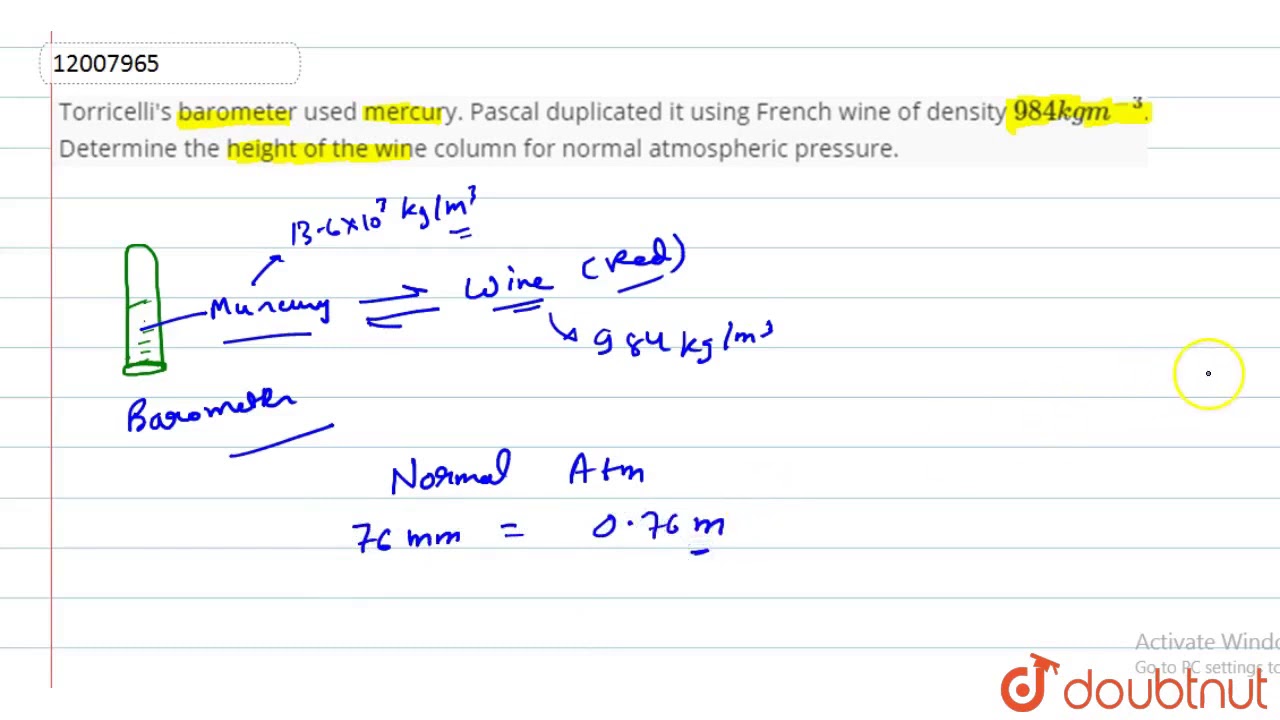 12007965
Torricelli's barometer used mercury. Pascal duplicated it using French wine of density 984kgm⁻³.
Determine the height of the wine column for normal atmospheric pressure.
13.6×10³ kg/m³
Wine (Red)
984 kg/m³
Barometer
Normal Atm
76 mm = 0.76 m
Activate Windo
Go to PC settings to
doubtnut